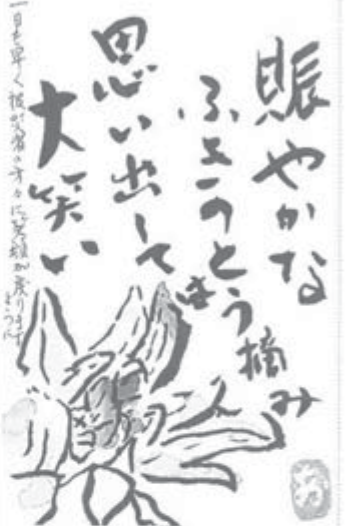 賑やかな
ふきのとう摘み
思い出しては
大笑い
一日も早く被災者の方々に笑顔が戻ります
ように